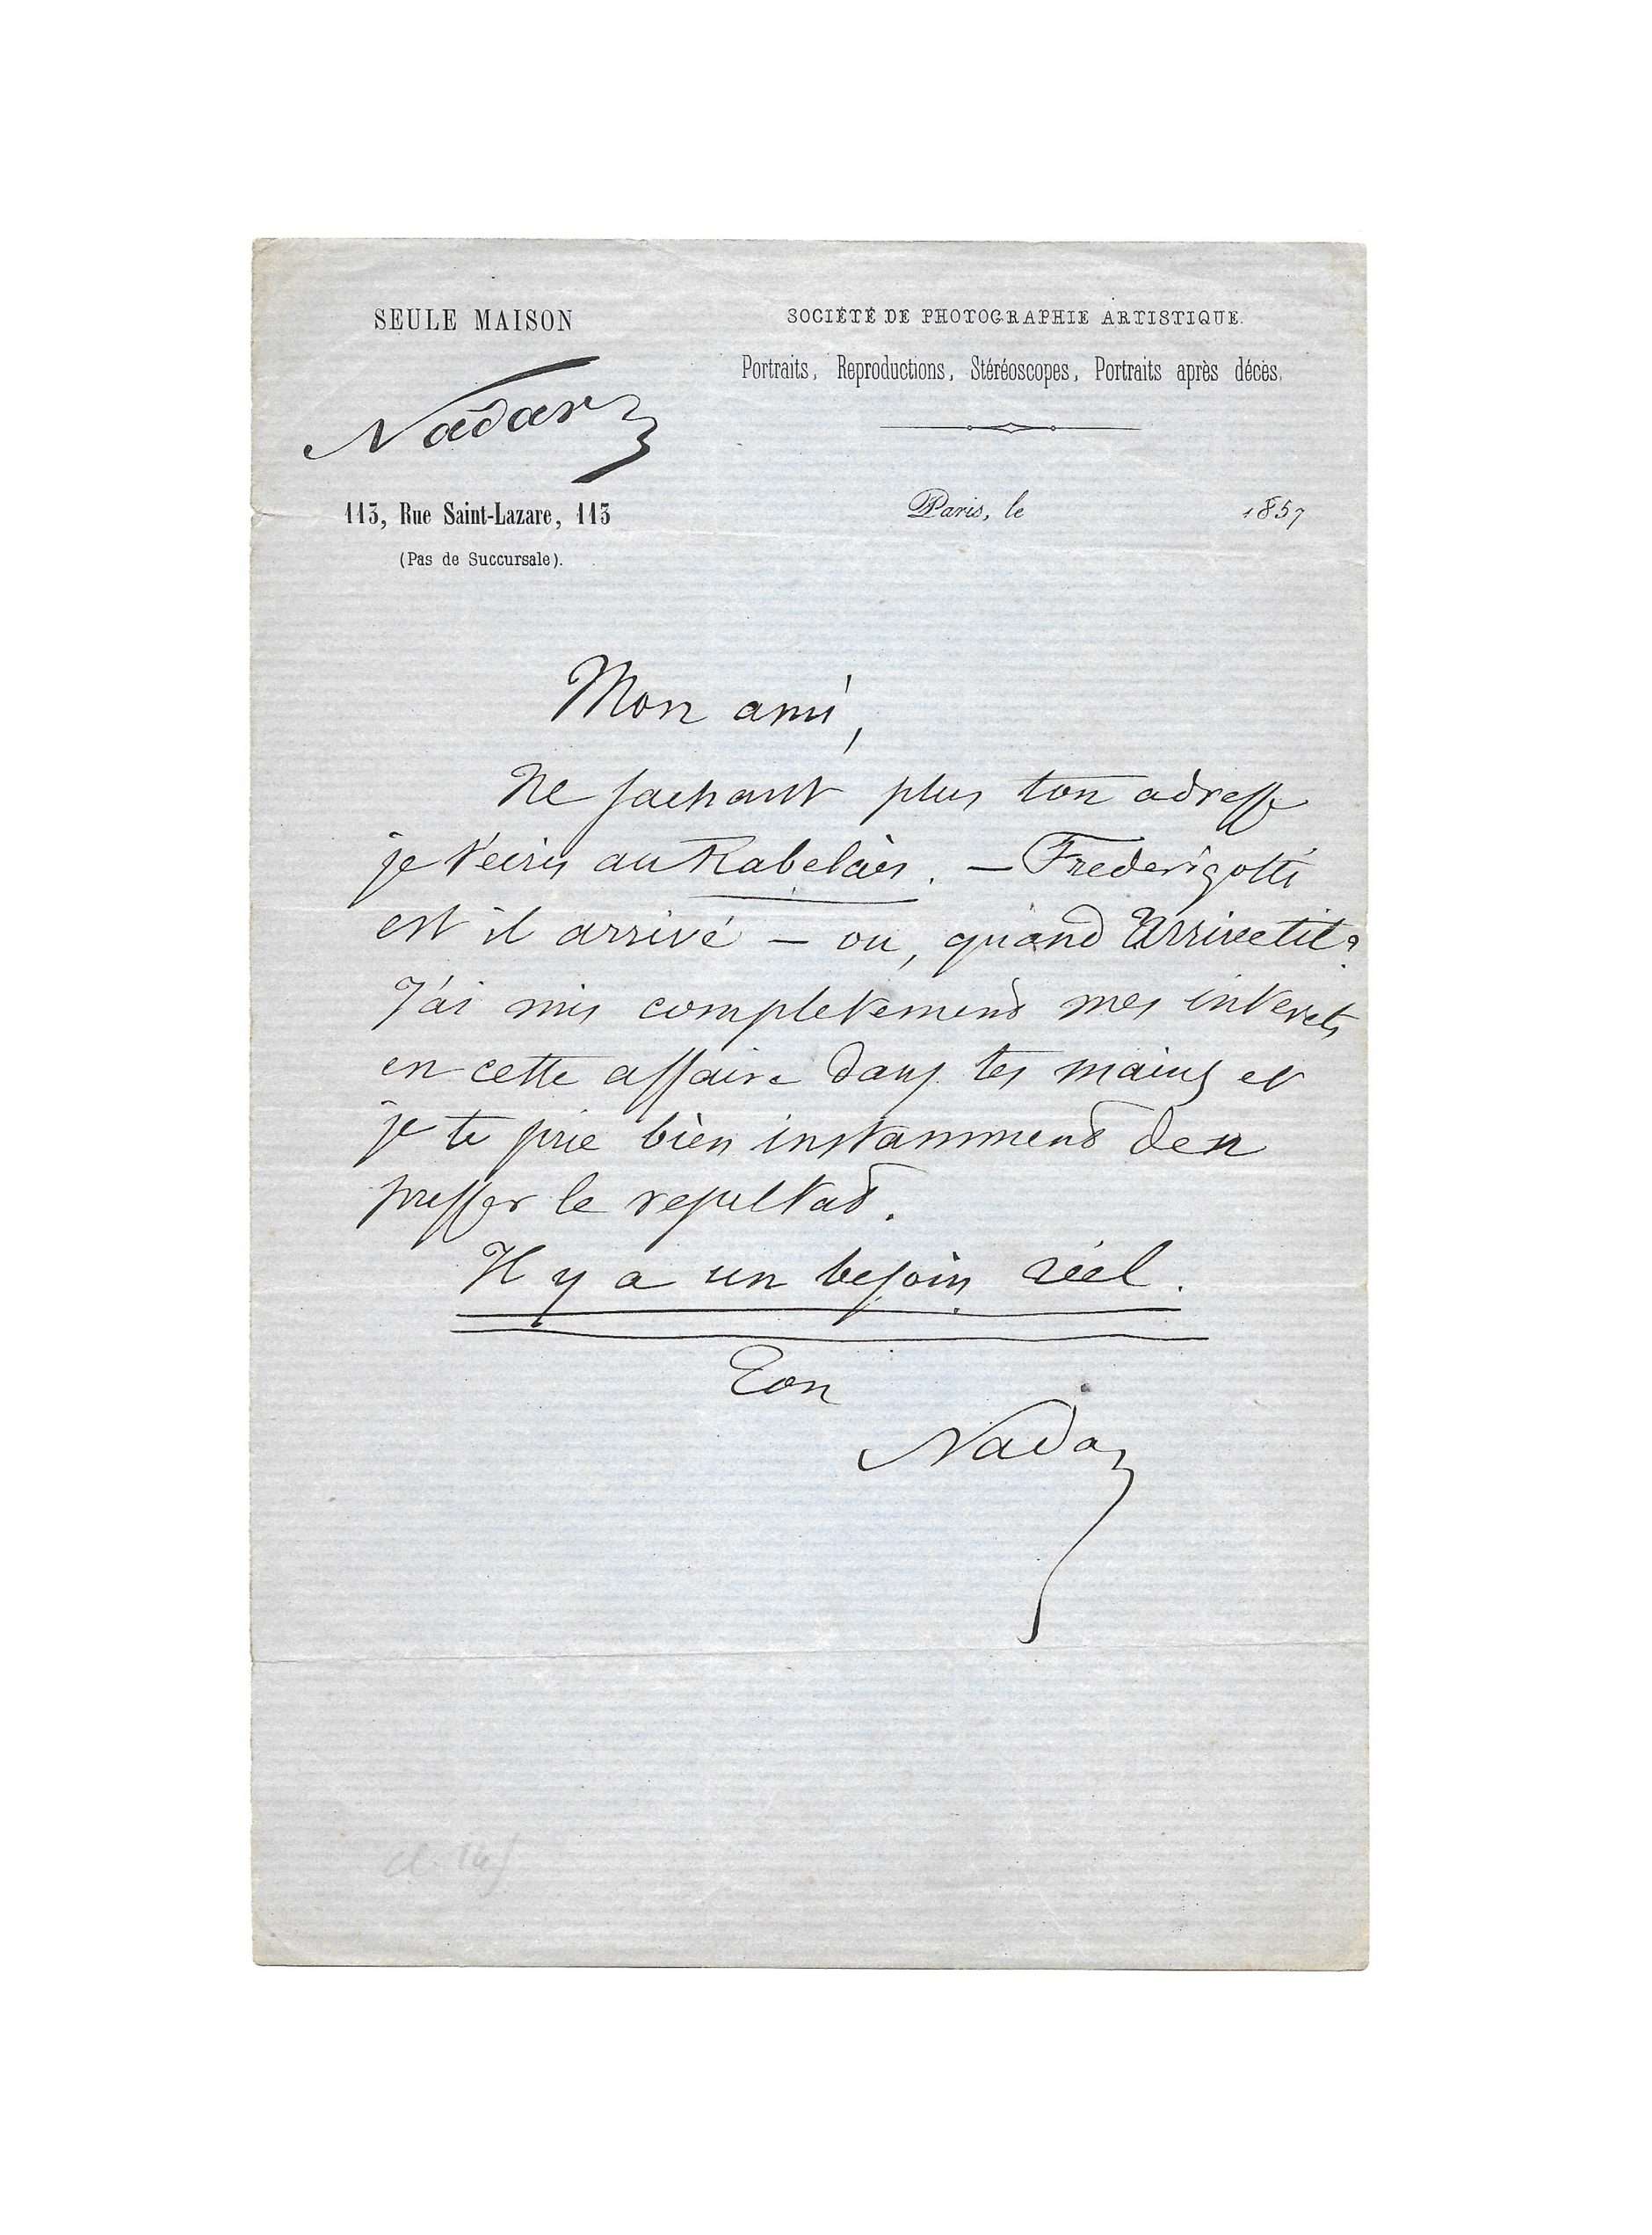 SEULE MAISON
Nadar
113, Rue Saint-Lazare, 113
(Pas de Succursale).
SOCIÉTÉ DE PHOTOGRAPHIE ARTISTIQUE.
Portraits, Reproductions, Stéréoscopes, Portraits après décès.
Paris, le 1857
Mon ami,
Ne sachant plus ton adresse
je t'ecris au Rabelais. — Frederigotti
est il arrivé — ou, quand arrivetil?
J'ai mis completement mes interets
en cette affaire dans tes mains et
je te prie bien instamment den
presser le resultat.
Il y a un besoin réel.
Ton
Nadar